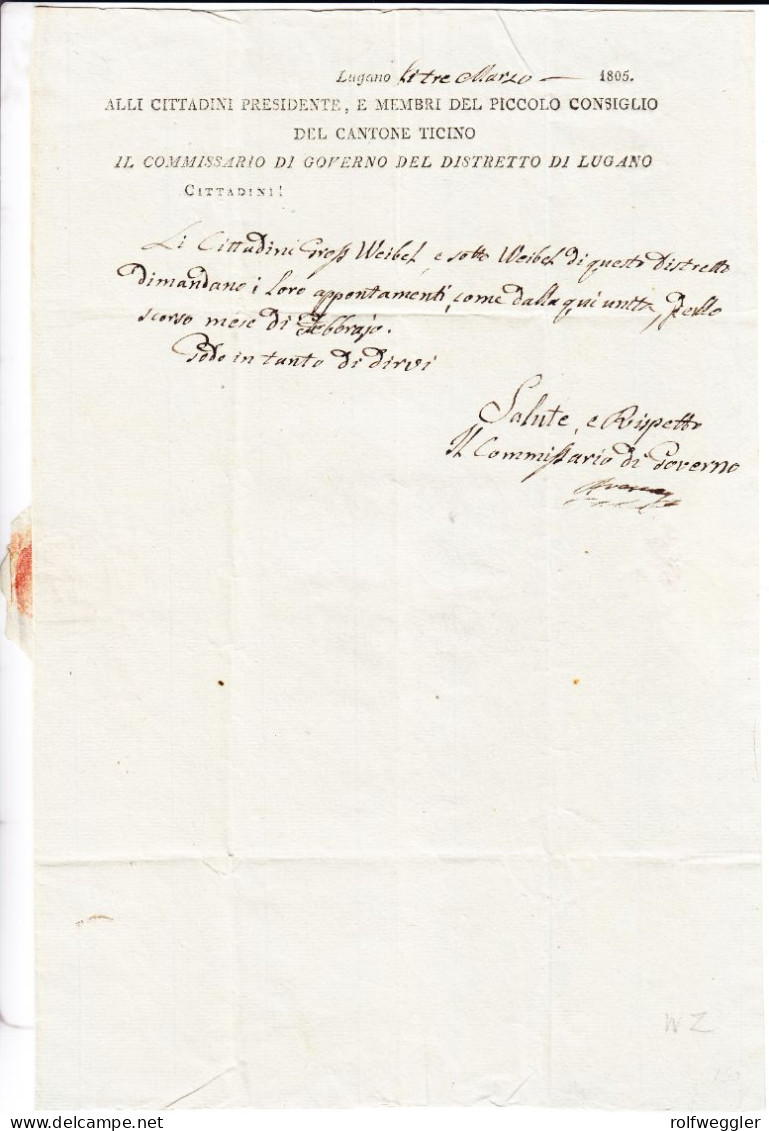 Lugano li tre Marzo — 1805.
ALLI CITTADINI PRESIDENTE, E MEMBRI DEL PICCOLO CONSIGLIO
DEL CANTONE TICINO
IL COMMISSARIO DI GOVERNO DEL DISTRETTO DI LUGANO
CITTADINI!
Li Cittadini Gross Weibel, e sotto Weibel di questo Distretto
dimandano i loro appontamenti, come dalla qui unita, dello
scorso mese di Febbrajo.
Godo in tanto di dirvi
Salute, e Rispetto
Il Commissario di Governo
WZ
rolfweggler